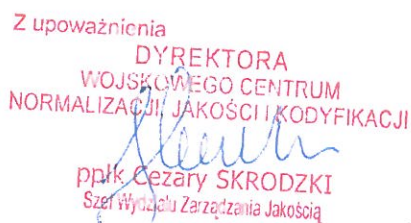 Z upoważnienia
DYREKTORA
WOJSKOWEGO CENTRUM
NORMALIZACJI, JAKOŚCI I KODYFIKACJI
ppłk Cezary SKRODZKI
Szef Wydziału Zarządzania Jakością